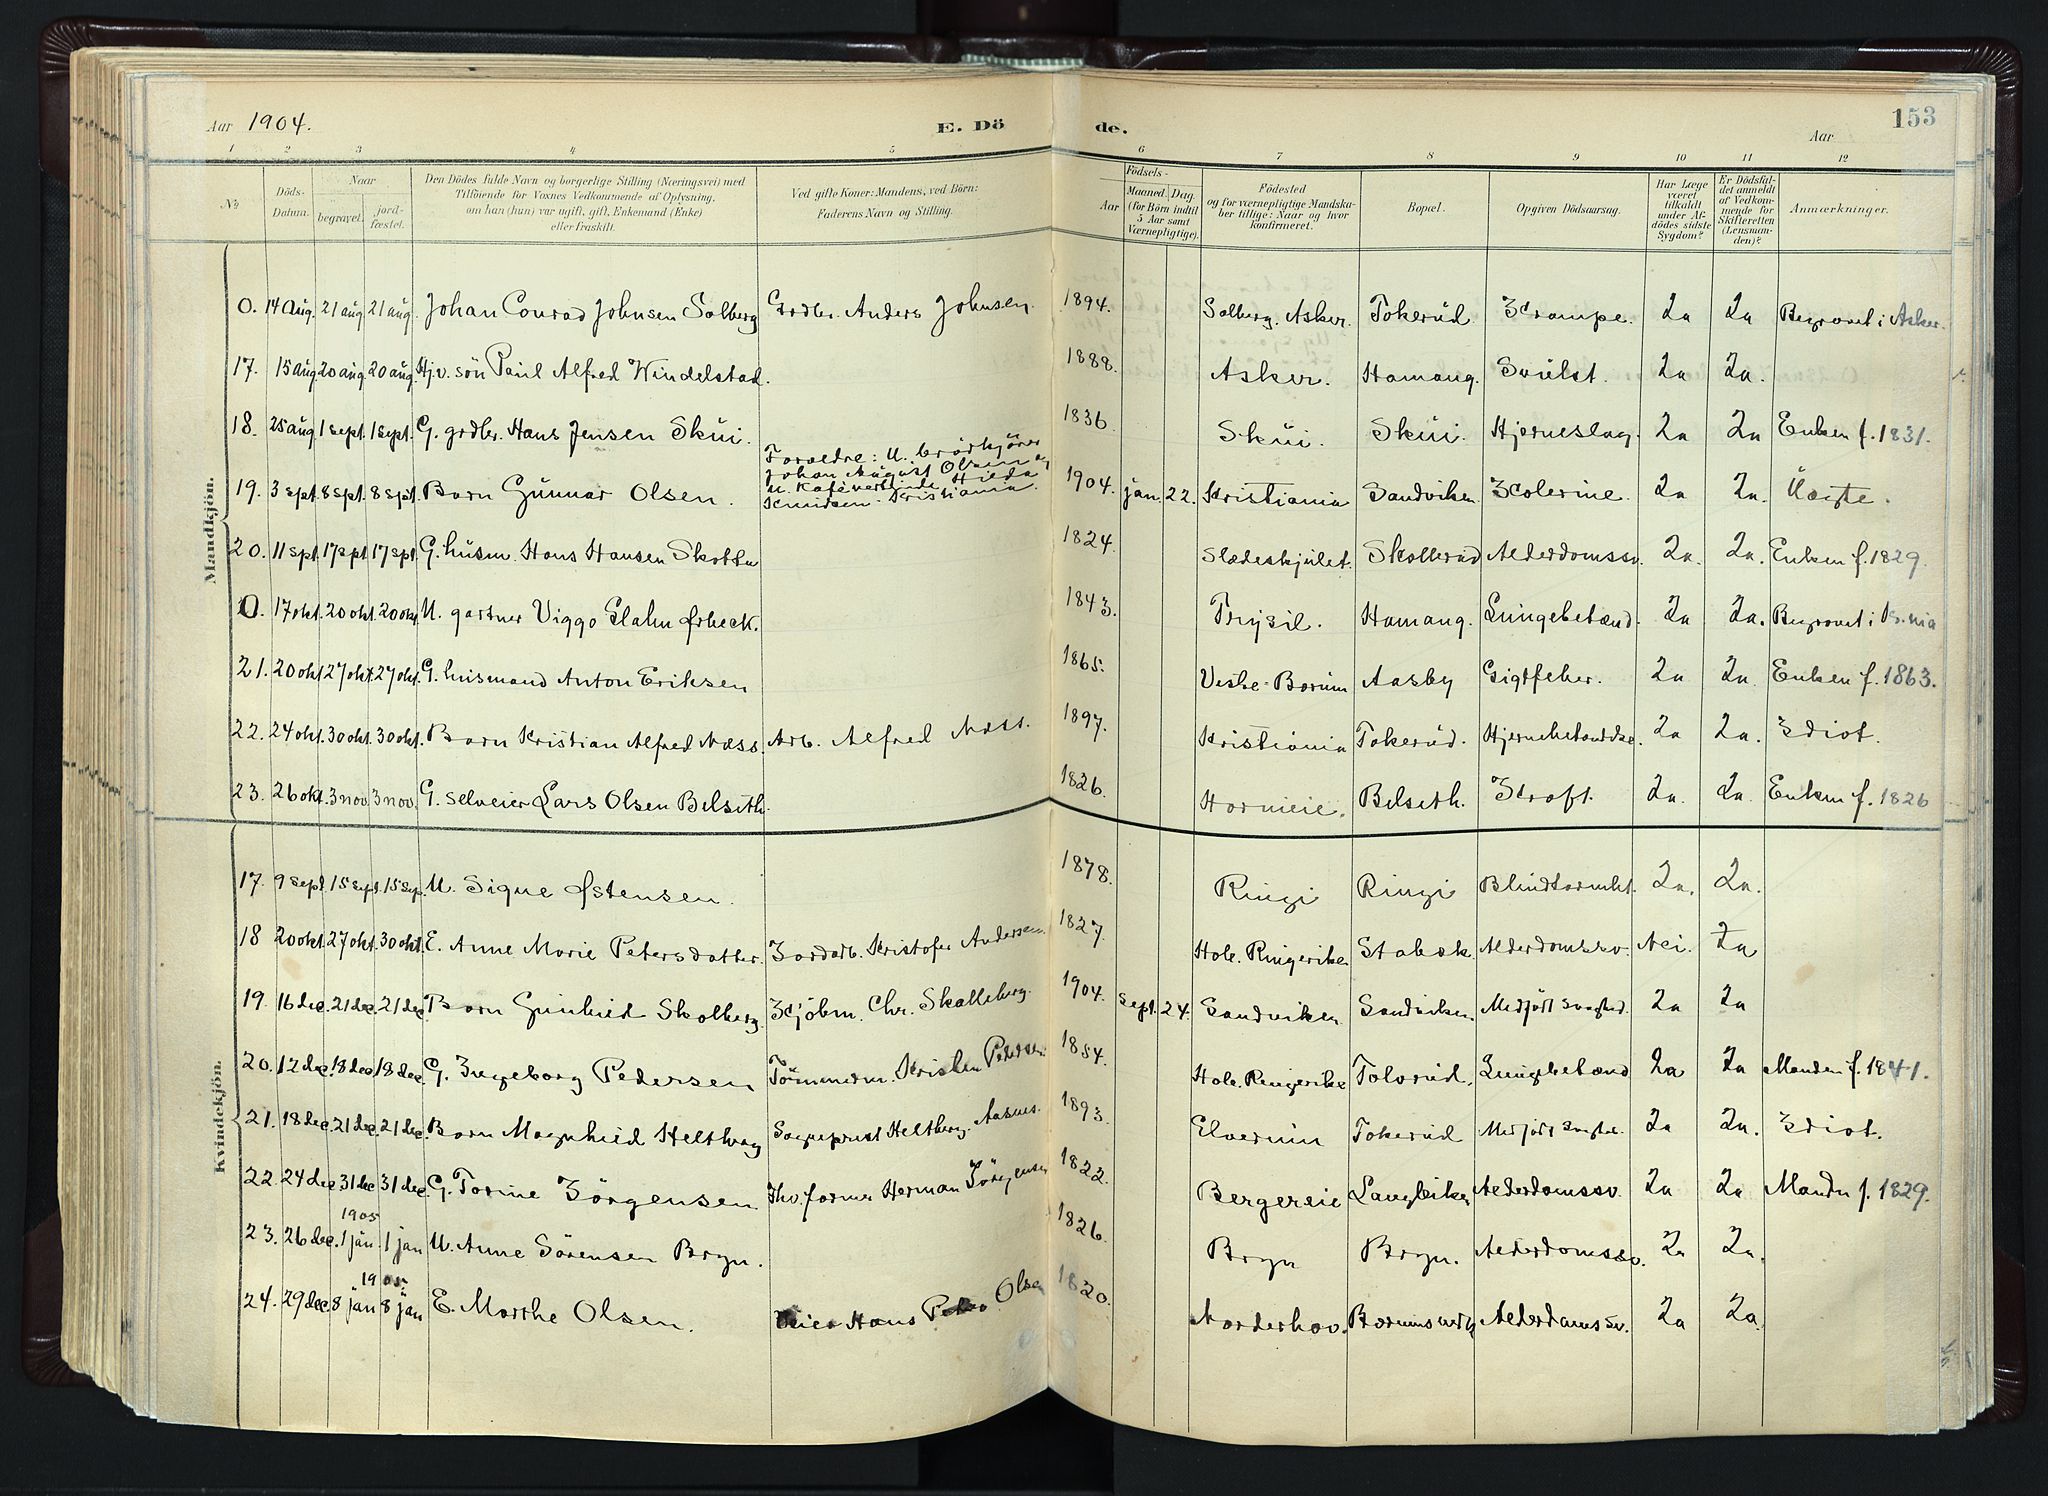 Aar 1904. E. Dö de. Aar 153
1 2 3 4 5 6 7 8 9 10 11 12
No. Döds-Datum. Naar begravet. jordfæstet. Den Dödes fulde Navn og borgerlige Stilling (Næringsvei) med Tilföiende for Voxnes Vedkommende af Oplysning, om han (hun) var ugift, gift, Enkemand (Enke) eller fraskilt. Ved gifte Koner: Mandens, ved Börn: Faderens Navn og Stilling. Födsels- Aar Maaned. Dag. (for Börn indtil 5 Aar samt Værnepligtige). Födested og for værnepligtige Mandskaber tillige: Naar og hvor konfirmeret. Bopæl. Opgiven Dödsaarsag. Har Læge været tilkaldt under Afdödes sidste Sygdom? Er Dödsfaldet anmeldt af Vedkommende for Skifteretten (Lensmanden)? Anmærkninger.
Mandkjön.
0. 14 Aug. 21 aug 21 aug. Johan Conrad Johnsen Solberg Grdbr. Anders Johnsen. 1894. Solberg. Asker. Tokerud. Krampe. Ja Ja Begravet i Asker.
17. 15 aug. 20 aug. 20 aug. Hjv. sön Paul Alfred Windelstad. 1888. Asker. Hamang. Svulst. Ja Ja.
18. 25 aug. 1 sept. 1 sept. G. grdbr. Hans Jensen Skui. 1836. Skui. Skui. Hjerneslag. Ja Ja Enken f. 1831.
19. 3 spt. 8 spt. 8 spt. Barn Gunnar Olsen. Forældre: U. brödkjörer Johan August Olsen og U. Kafévertinde Hilda Knudsen. Kristiania. 1904. jan. 22. Kristiania Sandviken Kolerine. Ja Ja. Uægte.
20. 11 spt. 17 spt. 17 spt. G. husm. Hans Hansen Skotta 1824. Slædeskjulet. Skollerud Alderdomssv. Ja. Ja. Enken f. 1829.
0. 17 okt. 20 okt. 20 okt. U. gartner Viggo Glahn Ørbeck. 1843. Trysil. Hamang. Lungebetænd. Ja Ja. Begravet i Kr.nia
21. 20 okt. 27 okt. 27 okt. G. husmand Anton Eriksen 1865. Vestre Bærum Aasby Gigtfeber. Ja Ja. Enken f. 1863.
22. 24 okt. 30 okt. 30 okt. Barn Kristian Alfred Næss. Arb. Alfred Næss. 1897. Kristiania Tokerud. Hjernebetændelse. Ja Ja. Idiot.
23. 26 okt. 3 nov. 3 nov. G. selveier Lars Olsen Belseth. 1826. Horneie. Belseth. Kræft. Ja. Ja. Enken f. 1826
Kvindekjön.
17. 9 sept. 15 sept. 15 sep. U. Signe Østensen. 1878. Ringi Ringi Blindtarmbet. Ja. Ja.
18 20 okt. 27 okt. 30 okt. E. Anne Marie Petersdatter. Jordarb. Kristofer Andersen 1827. Hole. Ringerike Stabæk. Alderdomssv. Nei. Ja
19. 16 dec. 21 dec. 21 dec. Barn Gunhild Skolberg Kjöbm. Chr. Skalleberg. 1904. Sept. 24. Sandviken Sandviken Medfödt svaghed. Ja Ja
20. 12 dec. 18 dec. 18 dec. G. Ingeborg Pedersen Tömmerm. Kristen Pedersen 1854. Hole. Ringerike Tolvrud. Lungebetænd Ja Ja Manden f. 1841.
21. 18 dec. 21 dec. 21 dec. Barn Magnhild Heltberg Sogneprest Heltberg. Aasnes. 1893. Elverum Tokerud Medfödt svaghed. Ja Ja. Idiot.
22. 24 dec. 31 dec 31 dec. G. Torine Jörgensen Fhv. farmer Herman Jörgensen 1822. Bergereie Langleiken Alderdomssv. Ja Ja Manden f. 1829.
1905
23. 26 dec. 1 jan. 1 jan U. Anne Sörensen Bryn. 1826. Bryn Bryn. Alderdomssv. Ja Ja.
1905
24. 29 dec. 8 jan 8 jan E. Marthe Olsen. Hans Olsen 1820. Norderhov. Bærumsverk Alderdomssv. Ja Ja.